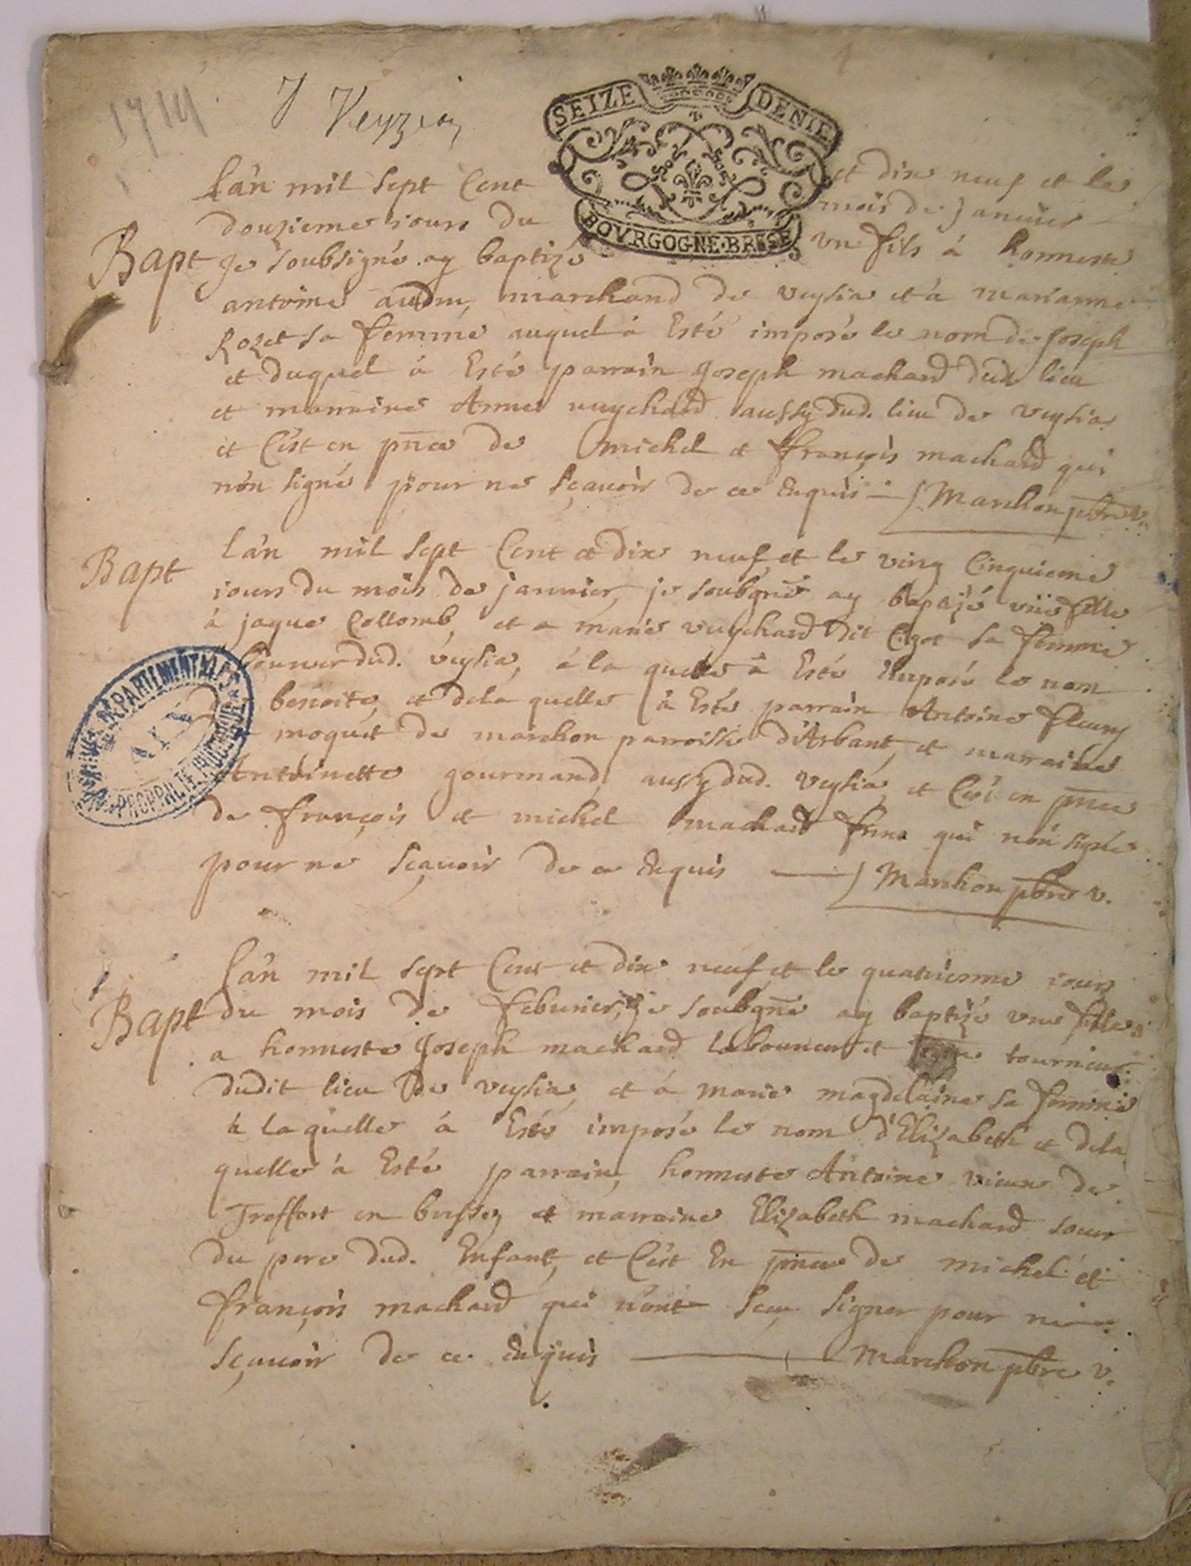 1719
J Veyzia,
SEIZE DENIE
BOVRGOGNE·BRESSE
L'an mil sept Cent et dix neuf et le
douzieme iours du mois de janvier
Bapt Je soubsigné ay baptizé vn fils à honneste
antoine marchand de veysia et à marianne
Rozet sa femme auquel à Esté imposé le nom de joseph
et duquel à Esté parrain joseph machard dud. lieu
et marraine Anne vuychard aussy dud. lieu de veysia
et C'est en pnce de michel et françois machard qui
n'on signé pour ne sçavoir de ce Enquis — Marchon pbre v.
Bapt L'an mil sept Cent et dix neuf et le ving Cinquieme
iours du mois de janvier, je soubgné ay baptizé vne fille
à jaque Collomb, et a marie vuychard dit Cizot sa femme
dud. veysia, à la quelle à Esté imposé le nom
benoite, et de la quelle à Esté parrain Antoine fleury
moquet de marchon parroisse d'Arbant, et marraine
Antoinette gourmand, aussy dud. veysia, et C'est en pnce
de françois et michel machard qui n'on signé
pour ne sçavoir de ce Enquis — Marchon pbre v.
ARCHIVES DÉPARTEMENTALES
AIN
PROPRIÉTÉ PUBLIQUE
L'an mil sept Cent et dix neuf, et le quatrieme iours
Bapt du mois de febvrier, je soubgné ay baptizé vne fille
a honneste Joseph machard laboureur et tourneur
dudit lieu de veysia, et à marie magdelaine sa femme
à laquelle à Esté imposé le nom d'Elizabeth et dela
quelle à Esté parrain, honneste Antoine vieux de
Treffort en bresse, et marraine Elizabeth machard soeur
du pere dud. Enfant, et C'est En pnce de michel et
françois machard qui n'ont sceu signer pour ne
sçavoir de ce Enquis — Marchon pbre v.